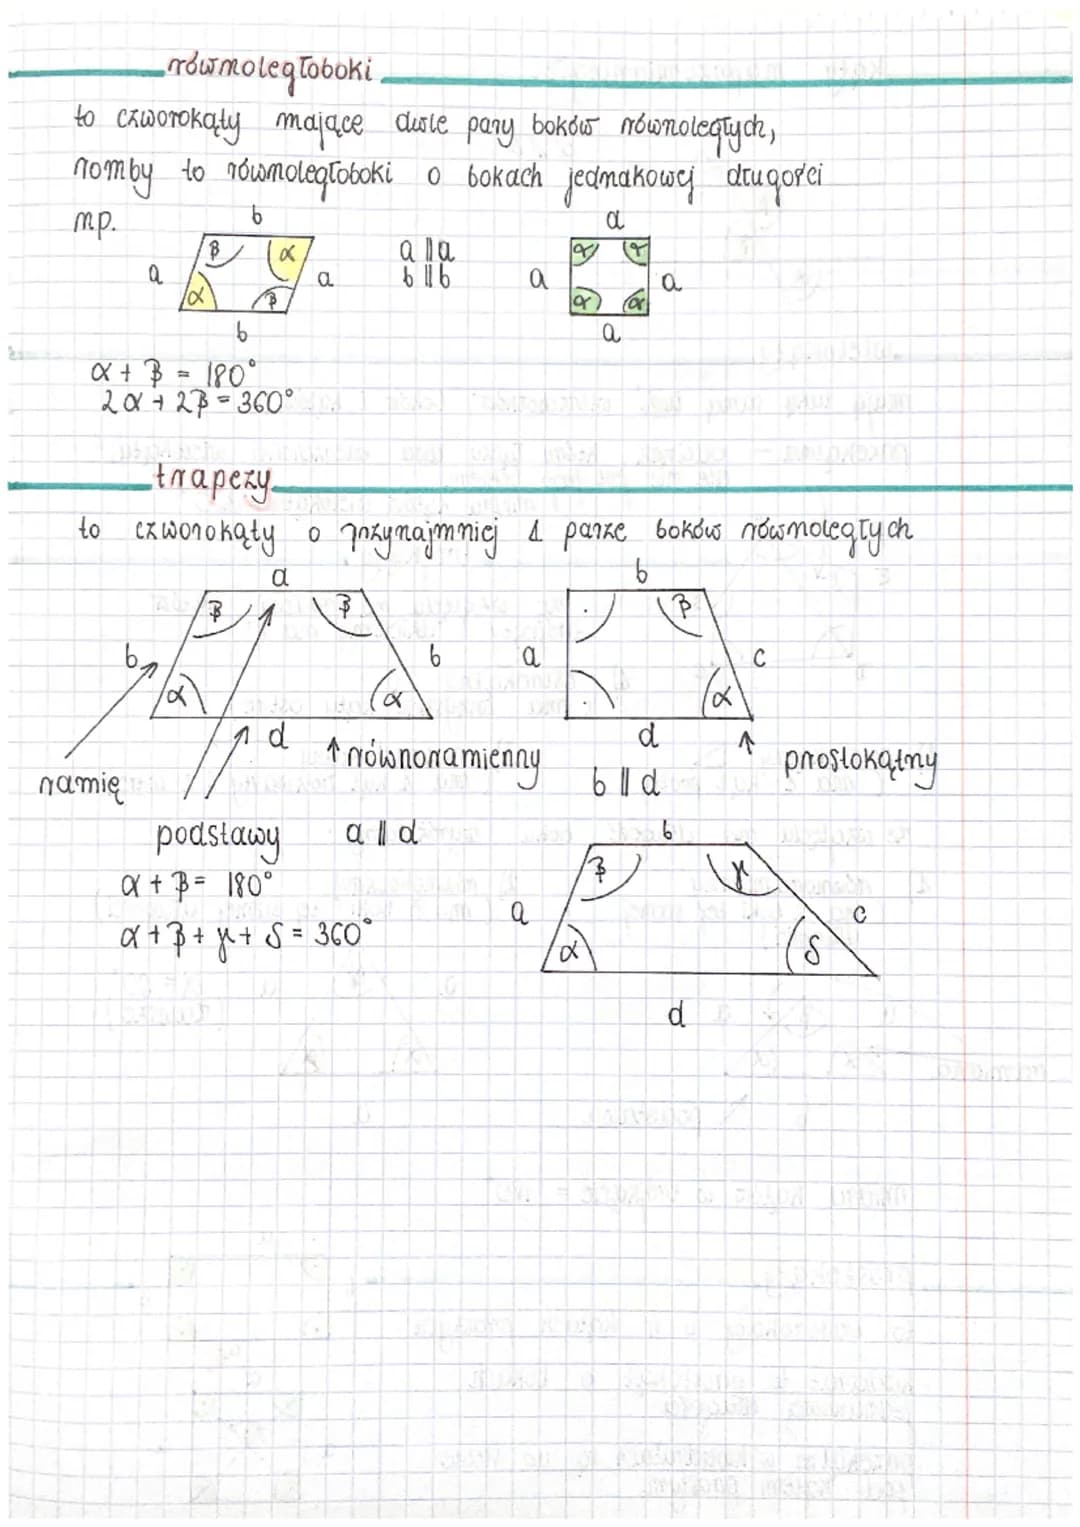 równoległoboki
to czworokąty mające dwie pary boków równoległych,
romby to równoległoboki o bokach jednakowej długości
np.
b
β α
a a
α β
b
a || a
b || b
a
α α
a a
α α
a
α + β = 180°
2α + 2β = 360°
trapezy
to czworokąty o przynajmniej 1 parze boków równoległych
a
β β
b b
α α
d
ramię
podstawy
↑ równoramienny
a || d
b
· β
a c
· α
d
↑ prostokątny
b || d
α + β = 180°
α + β + γ + δ = 360°
b
β γ
a c
α δ
d